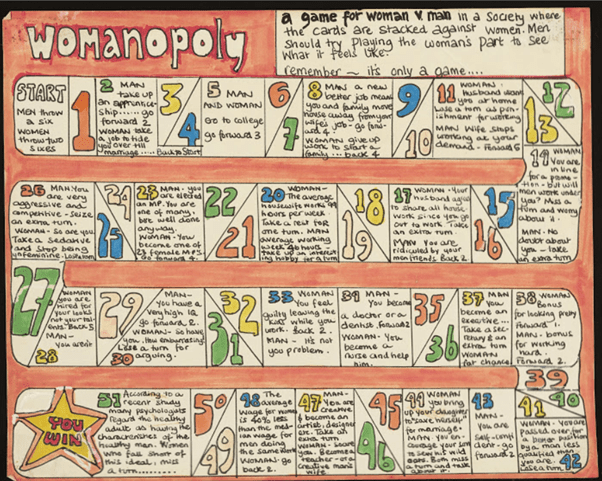 WOMANOPOLY
a game for woman v. man in a society where
the cards are stacked against women. Men
should try playing the woman's part to see
what it feels like.
remember ~ it's only a game....
START
MEN throw
a six
WOMEN
throw two
sixes
1
2 MAN
take up
an apprentice-
ship..... go
forward 2
WOMAN take
a job to tide
you over till
"marriage....
Back to Start
3
4
5 MAN
AND WOMAN
Go to college
go forward 3
6
7
8 MAN a new
better job means
you and family move
house away from your
wife's job - go for-
ward 4
WOMAN give up
work to start a
family... back 4
9
10
11 WOMAN -
husband wants
you at home
Lose a turn as pun-
ishment for working
MAN Wife stops
working at your
demand - Forward 5
12
13
14 WOMAN
You are
in line
for a promo-
tion - but will
men work under
you? Miss a
turn and worry
about it
MAN - No
doubt about
you - take
an extra turn
15
16
17 WOMAN - Your
husband agrees
to share all house
work since you go
out to work. Take
an extra turn
MAN You are
ridiculed by your
men friends Back 2
18
19
20 WOMAN -
The average
housewife works 99
hours per week.
Take a rest for
one turn. MAN
average working
week 40 hours -
take up an interest
ing hobby for a turn
21
22
23 MAN - you
are elected
an MP. You are
one of many,
but well done
anyway.
WOMAN - You
become one of
23 female MP's
Go forward 4.
24
25
26 MAN You
are very
aggressive and
competitive - seize
an extra turn.
WOMAN - So are you.
Take a sedative
and stop being
unfeminine - Lose a turn
27
WOMAN
you are
hired for
your looks
not your tal-
ents. Back 5
MAN -
You aren't
28
29
30
MAN -
you have a
very high IQ
go forward 2.
WOMAN - So have
you. How embarrassing!
Lose a turn for
arguing.
31
32
33 WOMAN
You feel
guilty leaving the
kids while you
work. Back 2
MAN - It's not
your problem.
34 MAN -
You become
a doctor or a
dentist. forward 2
WOMAN - You
become a
nurse and help
him.
35
36
37 MAN You
become an
executive...
Take a sec-
retary & an
extra turn
WOMAN
Fat chance
38 WOMAN
Bonus
for looking pretty
Forward 1.
MAN - bonus
for working
hard.
Forward 2.
39
40
41
WOMAN - You are
passed over for
a better position
by a man less
qualified than
you are.
Lose a turn
42
43
MAN -
You are
Self-confi
dent - go
forward 2
44 WOMAN
you bring
up your daughters
to "save herself"
for marriage.
MAN You en-
courage your son
to sow his wild
oats. Both miss
a turn and talk
about it.
45
46
47 MAN -
You are
creative &
become an
artist, designer
etc. Take an
extra turn
WOMAN - So are
you. Become a
teacher - or a
creative man's
wife
48 The
average
wage for women
is 40% less
than the med-
ian wage for
men doing
the same work
WOMAN - go
back 2.
49
50
51 According to a
recent study
many psychologists
regard the healthy
adult as having the
characteristics of the
healthy man. Women
who fall short of
this ideal, miss
a turn.......
YOU
WIN